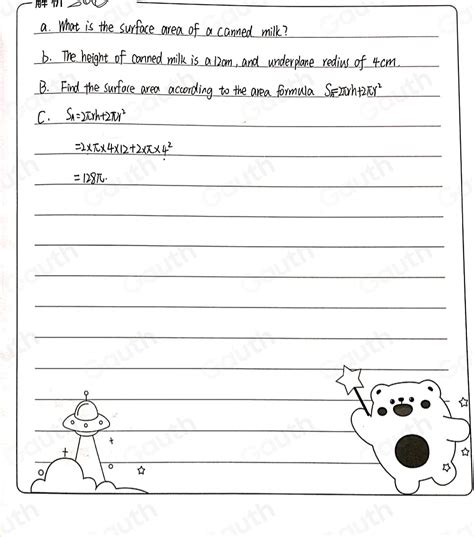 解析
a. What is the surface area of a canned milk?
b. The height of canned milk is a 12cm, and underplane redius of 4cm.
B. Find the surface area according to the area formula S表=2πrh+2πr²
C. S表=2πrh+2πr²
=2×π×4×12+2×π×4²
=128π.
Gauth